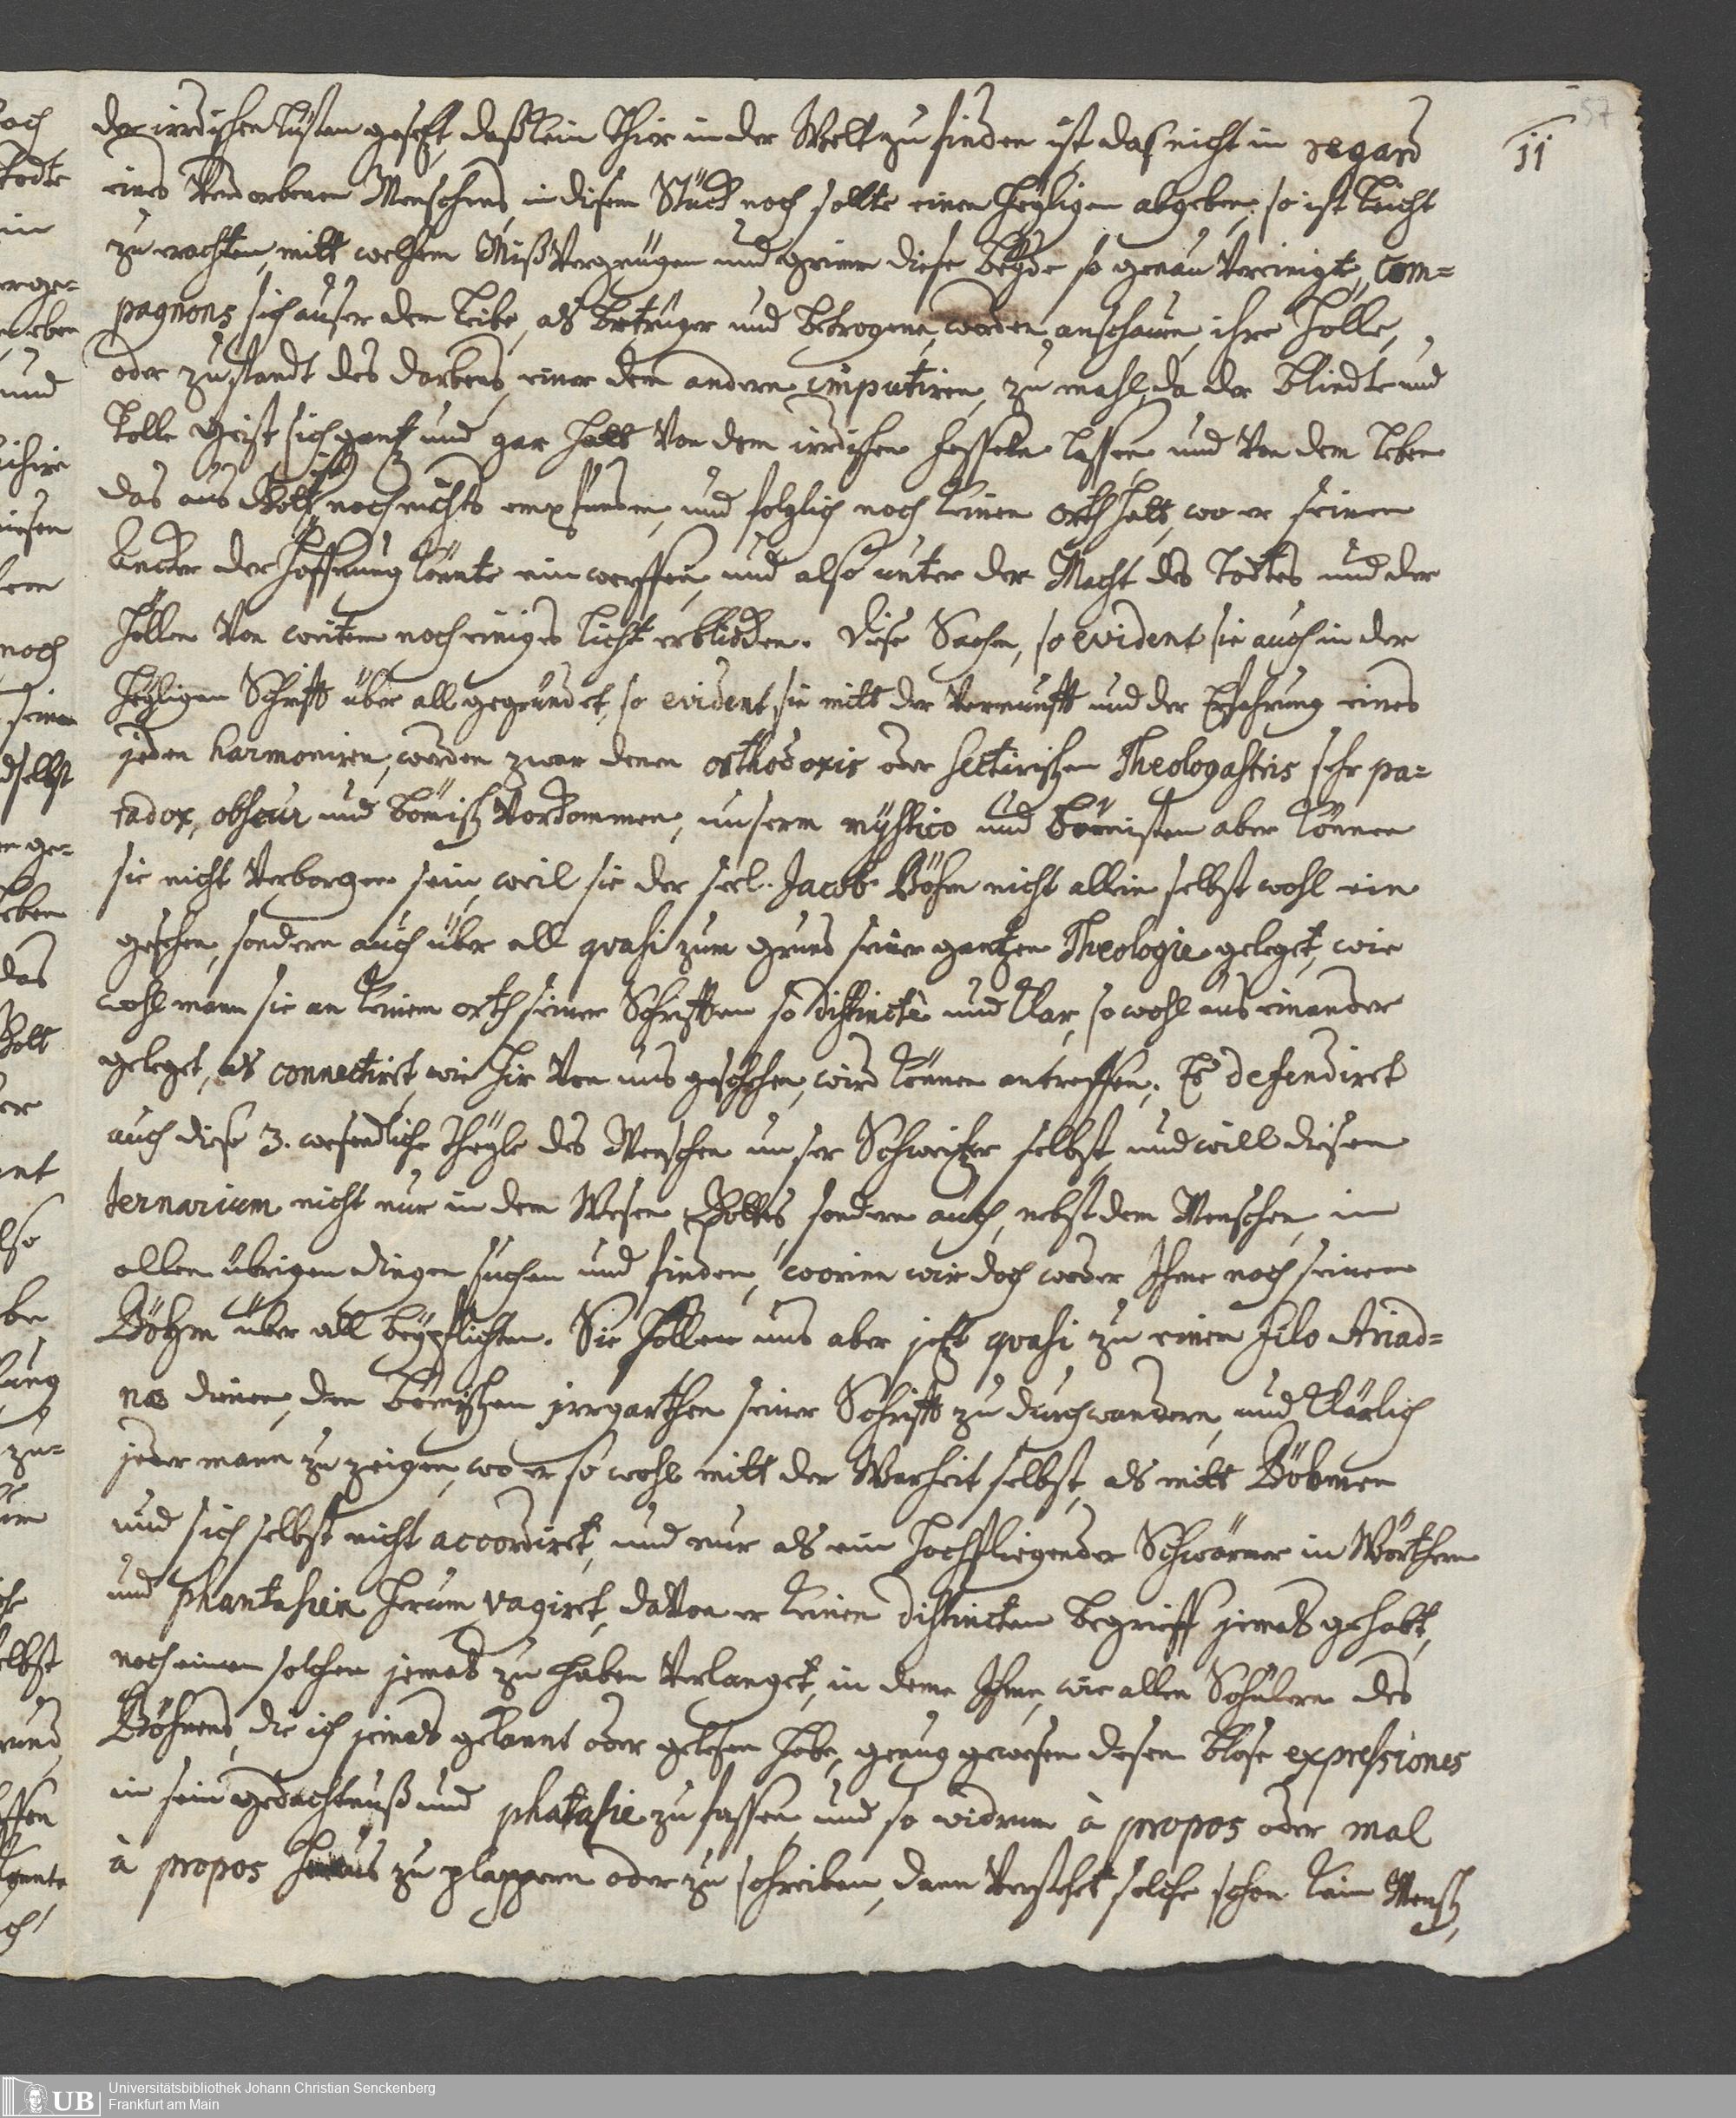 57
11
der irrdischen Lüsten gesetzt, daß kein Thier in der Welt zu finden ist, das nicht in regard
eines Verdorbenen Menschens, in diesem Stück noch sollte einen Heyligen abgeben; so ist leicht
zu erachten, mitt welchem MißVergnügen und grimm diese beyde so genau Vereinigte, Com=
pagnons, sich auser dem Leibe, als betrüger und betrogene, werden anschauen, ihre Hölle,
oder zustandt des darbens, einer dem andern imputiren, zu mahl, da der blindte und
tolle Geist sich gantz und gar hatt Von dem irrdischen fesseln lassen, und Von dem Leben
das aus Gott ist noch nichts empfunden, und folglich noch keinen orth hatt, wo er seinen
Ancker der Hoffnung könnte einwerffen, und also unter der Macht des Todtes und der
Höllen Von weitem noch einiges Licht erblicken. Diese Sachen, so evident sie auch in der
Heyligen Schrifft über all gegründet, so evident sie mitt der Vernunfft und der Erfahrung eines
jeden harmoniren, werden zwar denen orthodoxis oder sectirischen Theologastris sehr pa=
radox, obscur und bömisch Vorkommen, unserm mystico und Bömisten aber können
sie nicht Verborgen sein, weil sie der seel. Jacob Böhm nicht allein selbst wohl ein
gesehen, sondern auch über all quasi zum grund seiner gantzen Theologie geleget, wie
wohl mann sie an keinem orth seiner Schrifften so distincte und klar, so wohl aus einander
geleget, als connectiret, wie hir Von uns geschehen, wird können antreffen. Es defendiret
auch diese 3. wesendliche Theyle des Menschen unser Schweitzer selbst, und will diesen
ternarium nicht nur in dem Wesen Gottes, sondern auch, nebst dem Menschen, in
allen übrigen dingen suchen und finden, worinn wir doch weder Ihme noch seinem
Böhm über all beypflichten. Sie sollen uns aber jetzt quasi zu einen filo Ariad=
næ dienen, den bömischen irrgarthen seiner Schrifft zu durchwandern, und klärlich
jeder mann zu zeigen, wo er so wohl mitt der Warheit selbst, als mitt Böhmen
und sich selbst nicht accordiret, und nur als ein hochfliegender Schwärmer in Wörthern
und phantasien herum vagiret, daVon er keinen distincten begrieff jemals gehabt,
noch einen solchen jemals zu haben Verlanget, in deme Ihme, wie allen Schülern des
Böhmens, die ich jemals gekannt oder gelesen habe, genug gewesen dessen blose expressiones
in sein gedächtnuß und phatasie zu fassen und so widrum à propos oder mal
à propos heraus zu plappern oder zu schreiben, dann Verstehet solche schon kein Mensch,